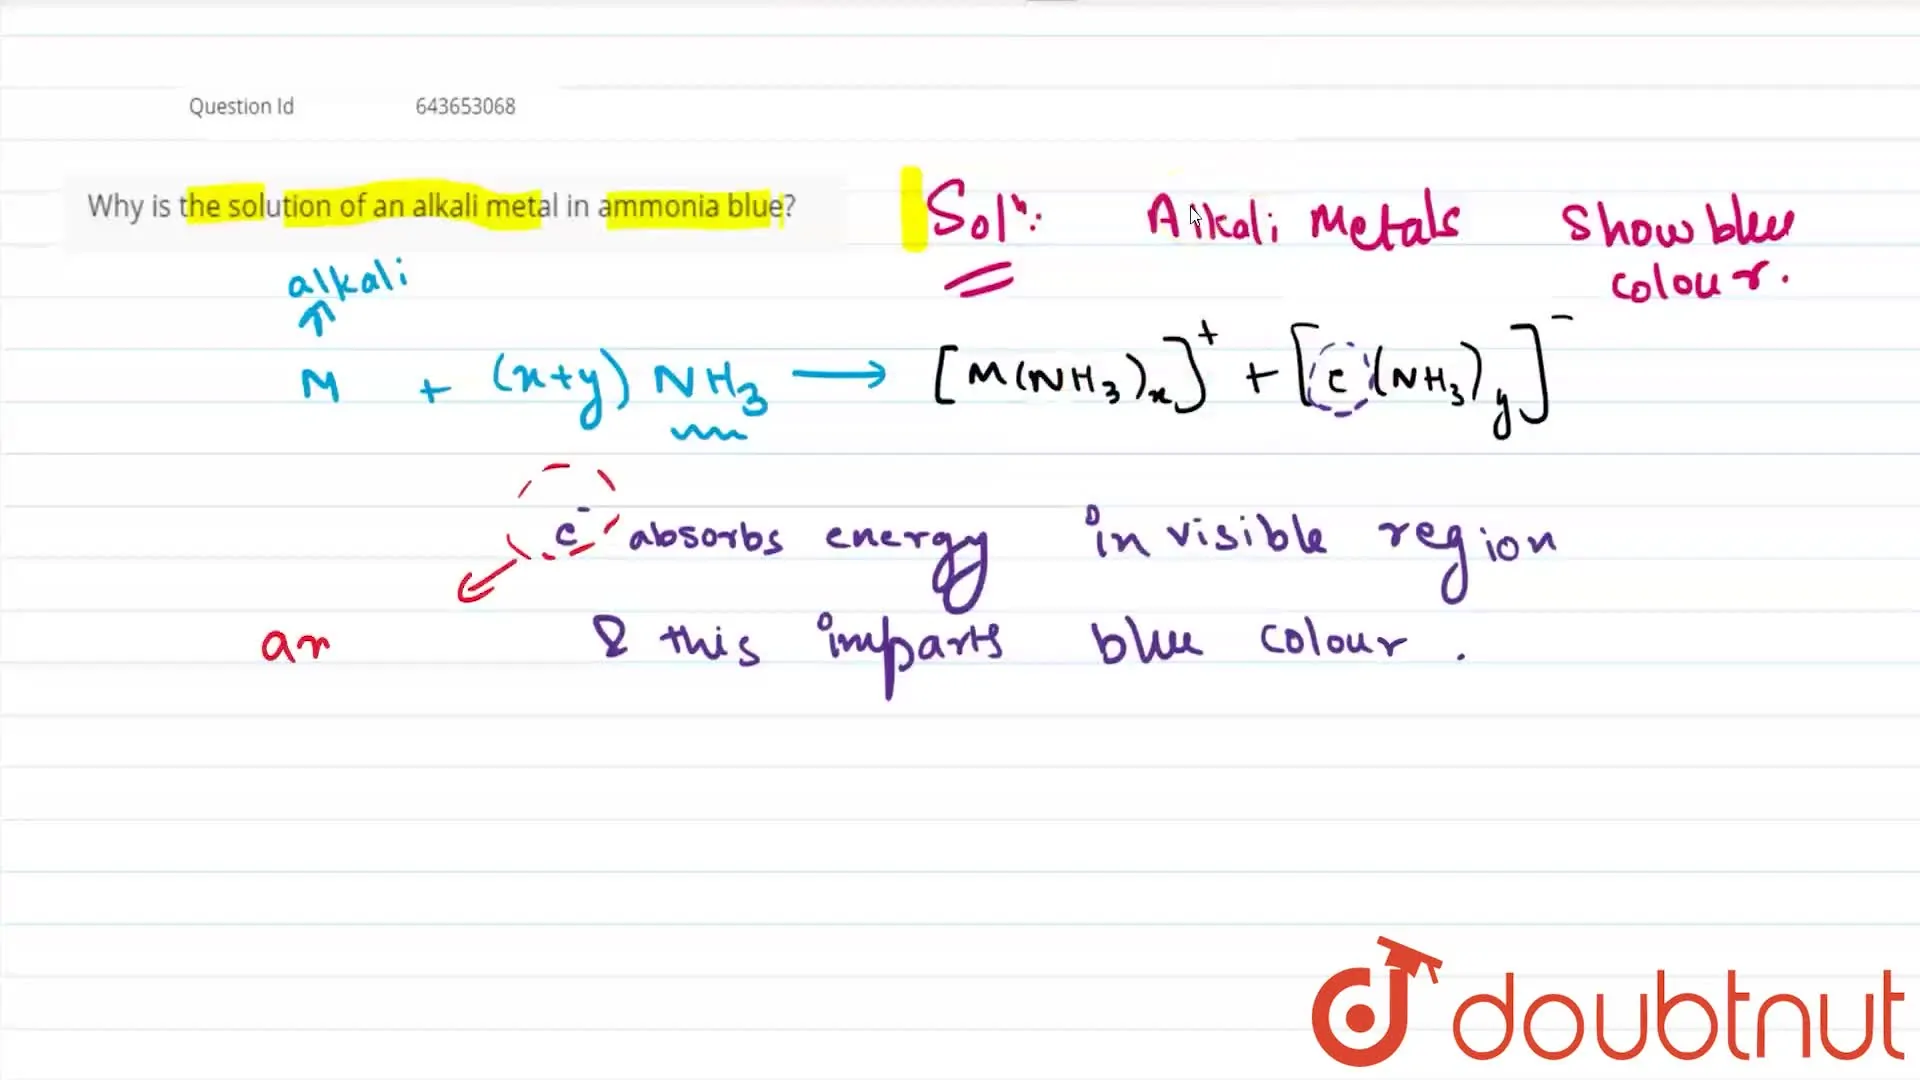 Question Id 643653068
Why is the solution of an alkali metal in ammonia blue?
Solⁿ: Alkali Metals Show blue
colour.
alkali
M + (x+y) NH₃ → [M(NH₃)ₓ]⁺ + [e(NH₃)y]⁻
e⁻ absorbs energy in visible region
an & this imparts blue colour.
doubtnut